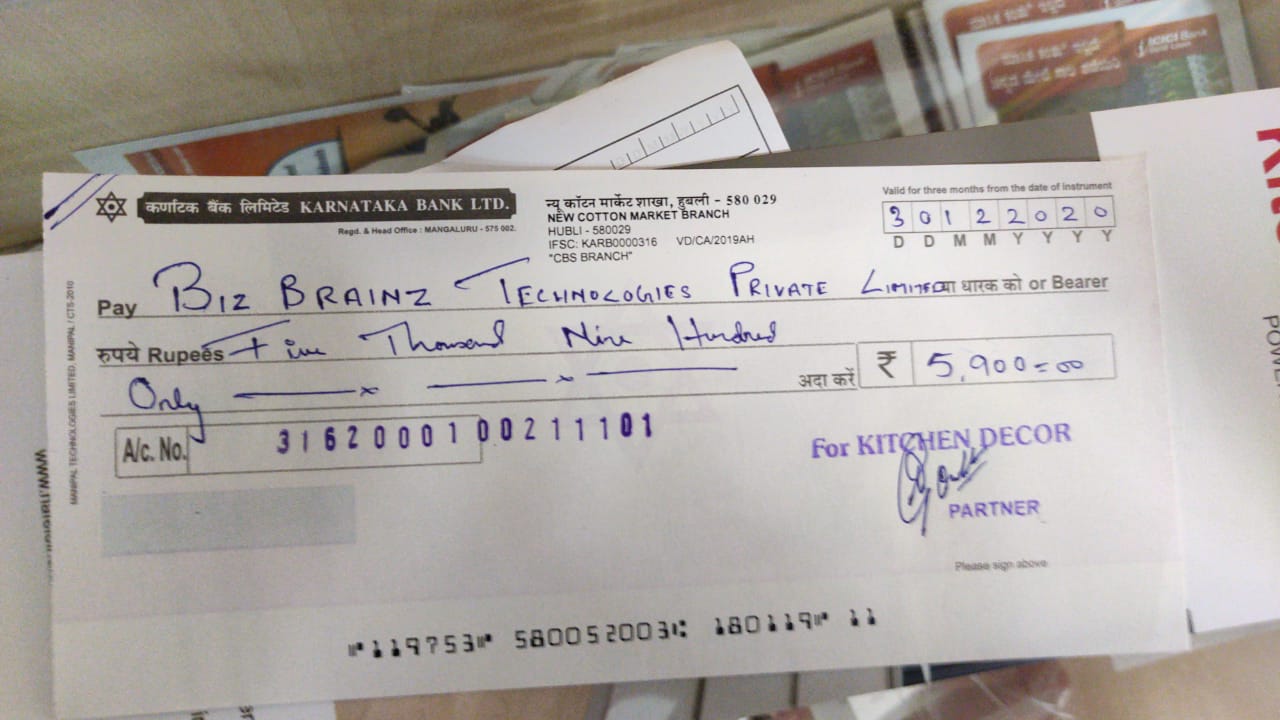 ICICI Bank
कर्णाटक बैंक लिमिटेड KARNATAKA BANK LTD.
Regd. & Head Office : MANGALURU - 575 002.
न्यू कॉटन मार्केट शाखा, हुबली - 580 029
NEW COTTON MARKET BRANCH
HUBLI - 580029
IFSC: KARB0000316 VD/CA/2019AH
"CBS BRANCH"
Valid for three months from the date of instrument
3 0 1 2 2 0 2 0
D D M M Y Y Y Y
Pay BIZ BRAINZ TECHNOLOGIES PRIVATE LIMITED या धारक को or Bearer
रुपये Rupees Five Thousand Nine Hundred
Only
अदा करें ₹ 5,900=00
A/c. No. 3162000100211101
For KITCHEN DECOR
PARTNER
Please sign above
⑈119753⑈ 580052003⑆ 180119⑈ 11
MANIPAL TECHNOLOGIES LIMITED, MANIPAL / CTS-2010